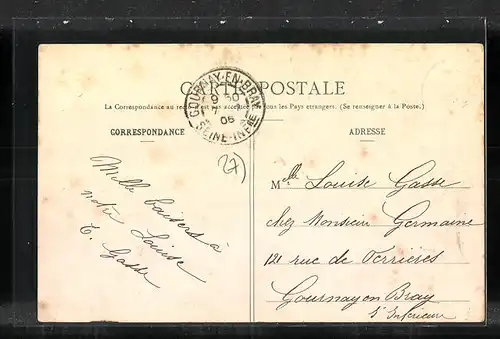 CARTE POSTALE
La Correspondance au recto n'est pas acceptée par tous les Pays étrangers. (Se renseigner à la Poste.)
GOURNAY-EN-BRAY
9 30
7
05
SEINE-INFRE
CORRESPONDANCE
Mille baisers à
notre Louise
E. Gasse
27
ADRESSE
Melle Louise Gasse
chez Monsieur Germaine
121 rue de Ferrières
Gournay en Bray
Sne Inférieure